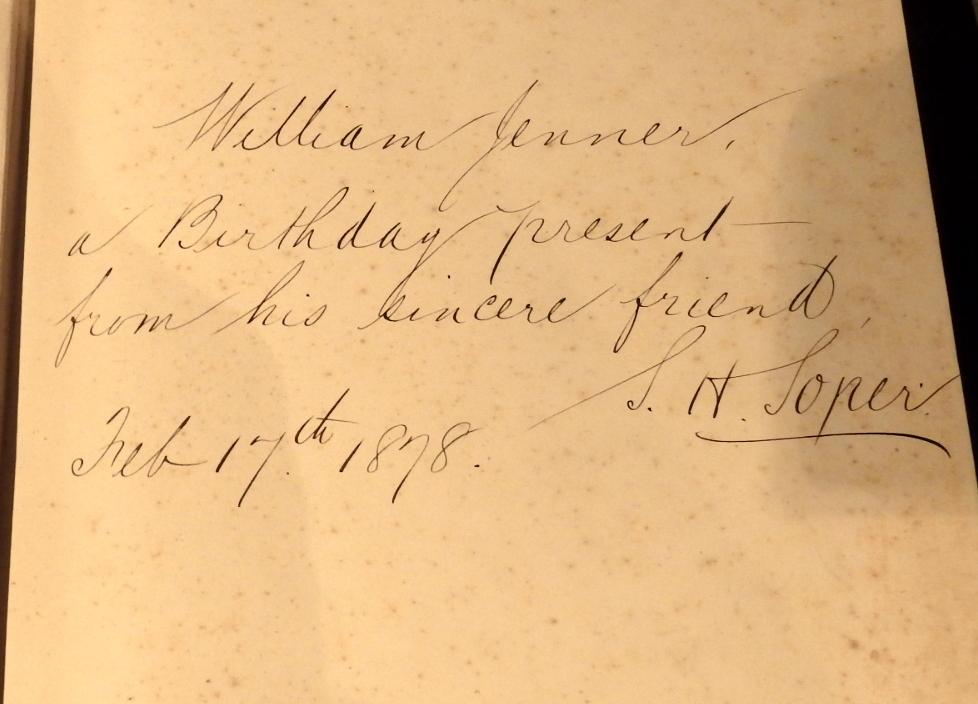 William Jenner,
a Birthday present
from his sincere friend,
S. H. Soper.
Feb 17.th 1878.